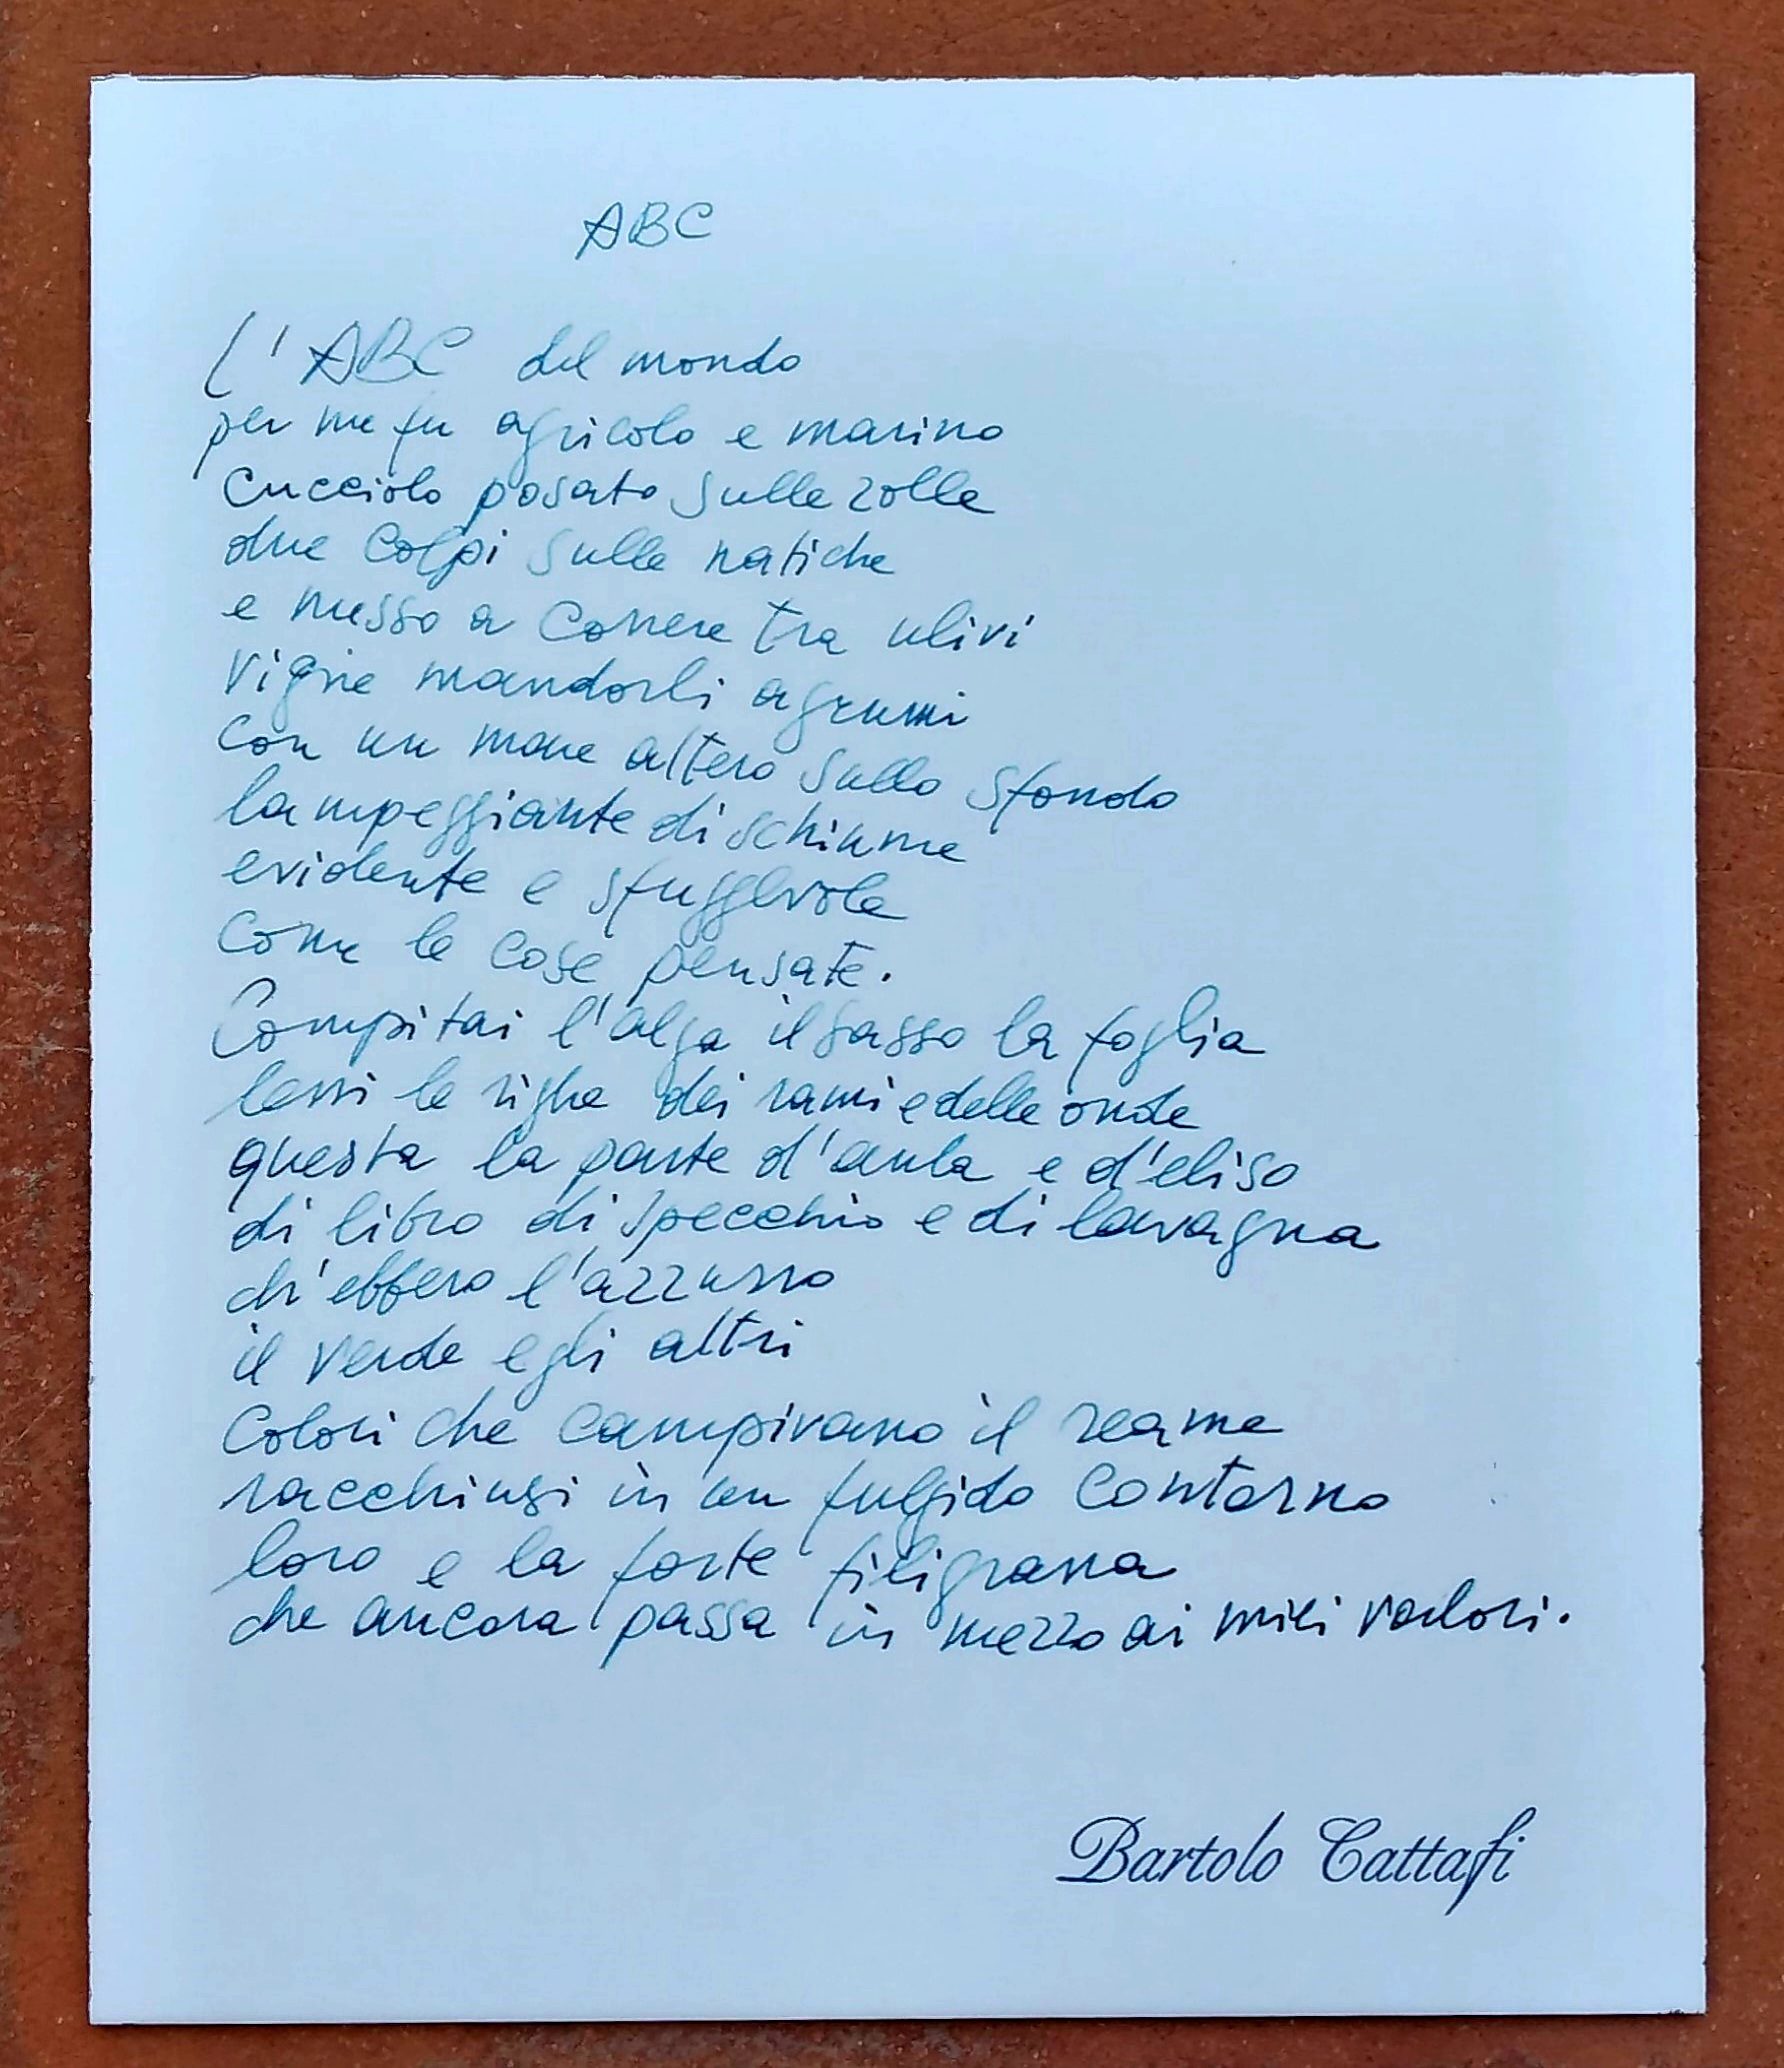 ABC
L'ABC del mondo
per me fu agricolo e marino
cucciolo posato sulle zolle
due colpi sulle natiche
e messo a correre tra ulivi
vigne mandorli agrumi
con un mare altero sullo sfondo
lampeggiante di schiume
evidente e sfuggevole
come le cose pensate.
Compitai l'alga il sasso la foglia
lessi le righe dei rami e delle onde
questa la parte d'aula e d'eliso
di libro di specchio e di lavagna
ch'ebbero l'azzurro
il verde e gli altri
colori che campivano il reame
racchiusi in un fulgido contorno
loro e la forte filigrana
che ancora passa in mezzo ai miei valori.
Bartolo Cattafi